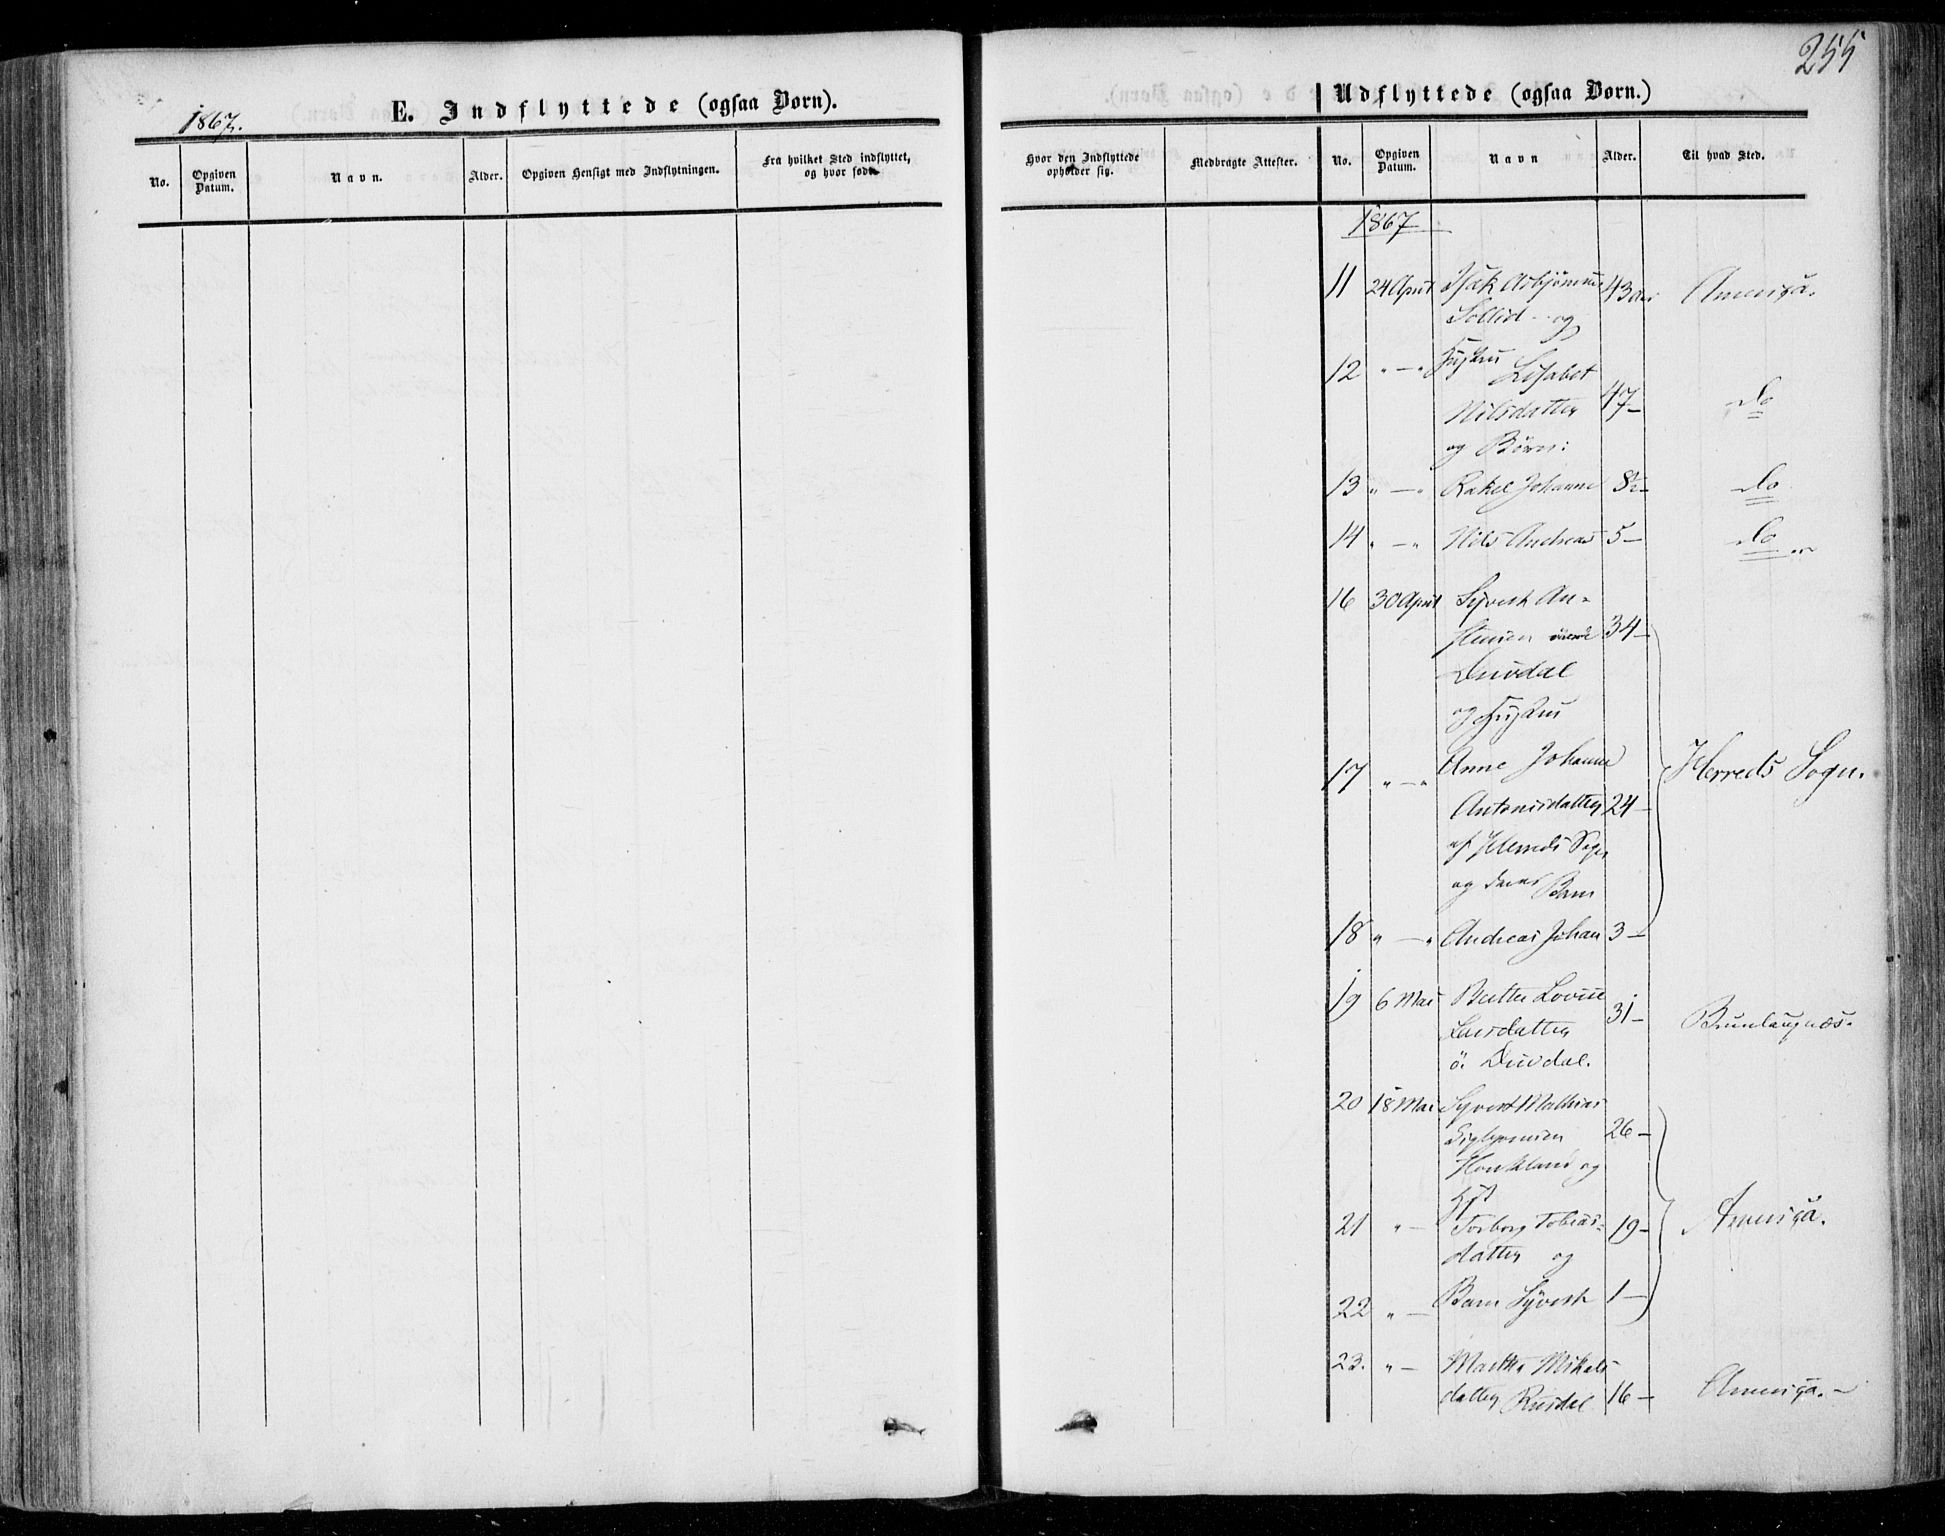 1867.
E. Indflyttede (ogsaa Børn).
No.
Opgiven Datum.
Navn.
Alder.
Opgiven Hensigt med Indflytningen.
Fra hvilket Sted indflyttet, og hvor født.
255
Udflyttede (ogsaa Børn.)
Hvor den Indflyttede opholder sig.
Medbragte Attester.
No.
Opgiven Datum.
Navn
Alder.
Til hvad Sted.
1867
11 24 April Isak Asbjörnsen 43 Aar Ameriça.
Sollid og
12 " — " Hustru Lisabet
Nilsdatter 47 — do
og Börn:
13 " — " Rakel Johanne 8½ — do
14 " — " Nils Andreas 5 — do
16 30 April Syvert An-
stensen 34 —
Deivdal
og Hustru
17 " — " Anne Johanne
Antonisdatter 24 — Herreds Sogn.
af Herreds Sogn
og deres Barn
18 " — " Andreas Johan 3 —
19 6 Mai Berthe Lovise 31 — Brunlaugnæs.
Larsdatter
ö. Deivdal.
20 18 Mai Syvert Mathias
26 —
Houkland og
Hust
21 " — Torborg Tobias- 19 — Ameriça.
datter og
22 " — Barn Syvert 1 —
23. " — Marthe Mikals
datter Rusdal 16 — Ameriça. —